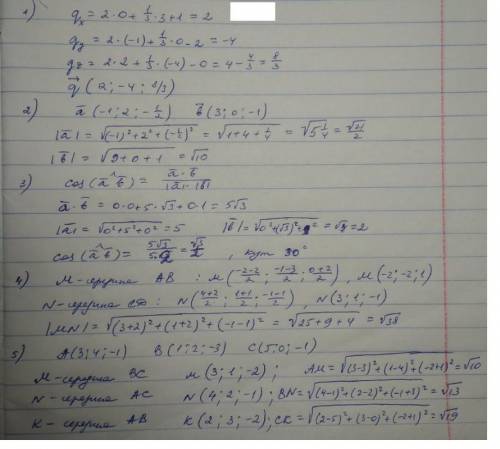 1) qₓ = 2·0 + 1/3·3 + 1 = 2
q_y = 2·(-1) + 1/3·0 - 2 = -4
q_z = 2·2 + 1/3·(-4) - 0 = 4 - 4/3 = 8/3
q⃗ (2; -4; 8/3)
2) a̅ (-1; 2; -1/2) b̅ (3; 0; -1)
|a̅| = √((-1)²+2²+(-1/2)²) = √(1+4+1/4) = √(5 1/4) = √21/2
|b̅| = √(9+0+1) = √10
3) cos(a̅^b̅) = a̅·b̅/|a̅|·|b̅|
a̅·b̅ = 0·0+5·√3+0·1 = 5√3
|a̅| = √(0²+5²+0²) = 5 |b̅| = √(0²+(√3)²+1²) = √4 = 2
cos(a̅^b̅) = 5√3/5·2 = √3/2, кут 30°
4) M-середина AB : M(-2-2/2; -1-3/2; 0+2/2), M(-2; -2; 1)
N-середина CD: N(4+2/2; 1+1/2; -1-1/2), N(3; 1; -1)
|MN| = √((3+2)²+(1+2)²+(-1-1)²) = √(25+9+4) = √38
5) A(3; 4; -1) B(1; 2; -3) C(5; 0; -1)
M-середина BC M(3; 1; -2); AM=√((3-3)²+(1-4)²+(-2+1)²)=√10
N-середина AC N(4; 2; -1); BN=√((4-1)²+(2-2)²+(-1+3)²)=√13
K-середина AB K(2; 3; -2); CK=√((2-5)²+(3-0)²+(-2+1)²)=√19